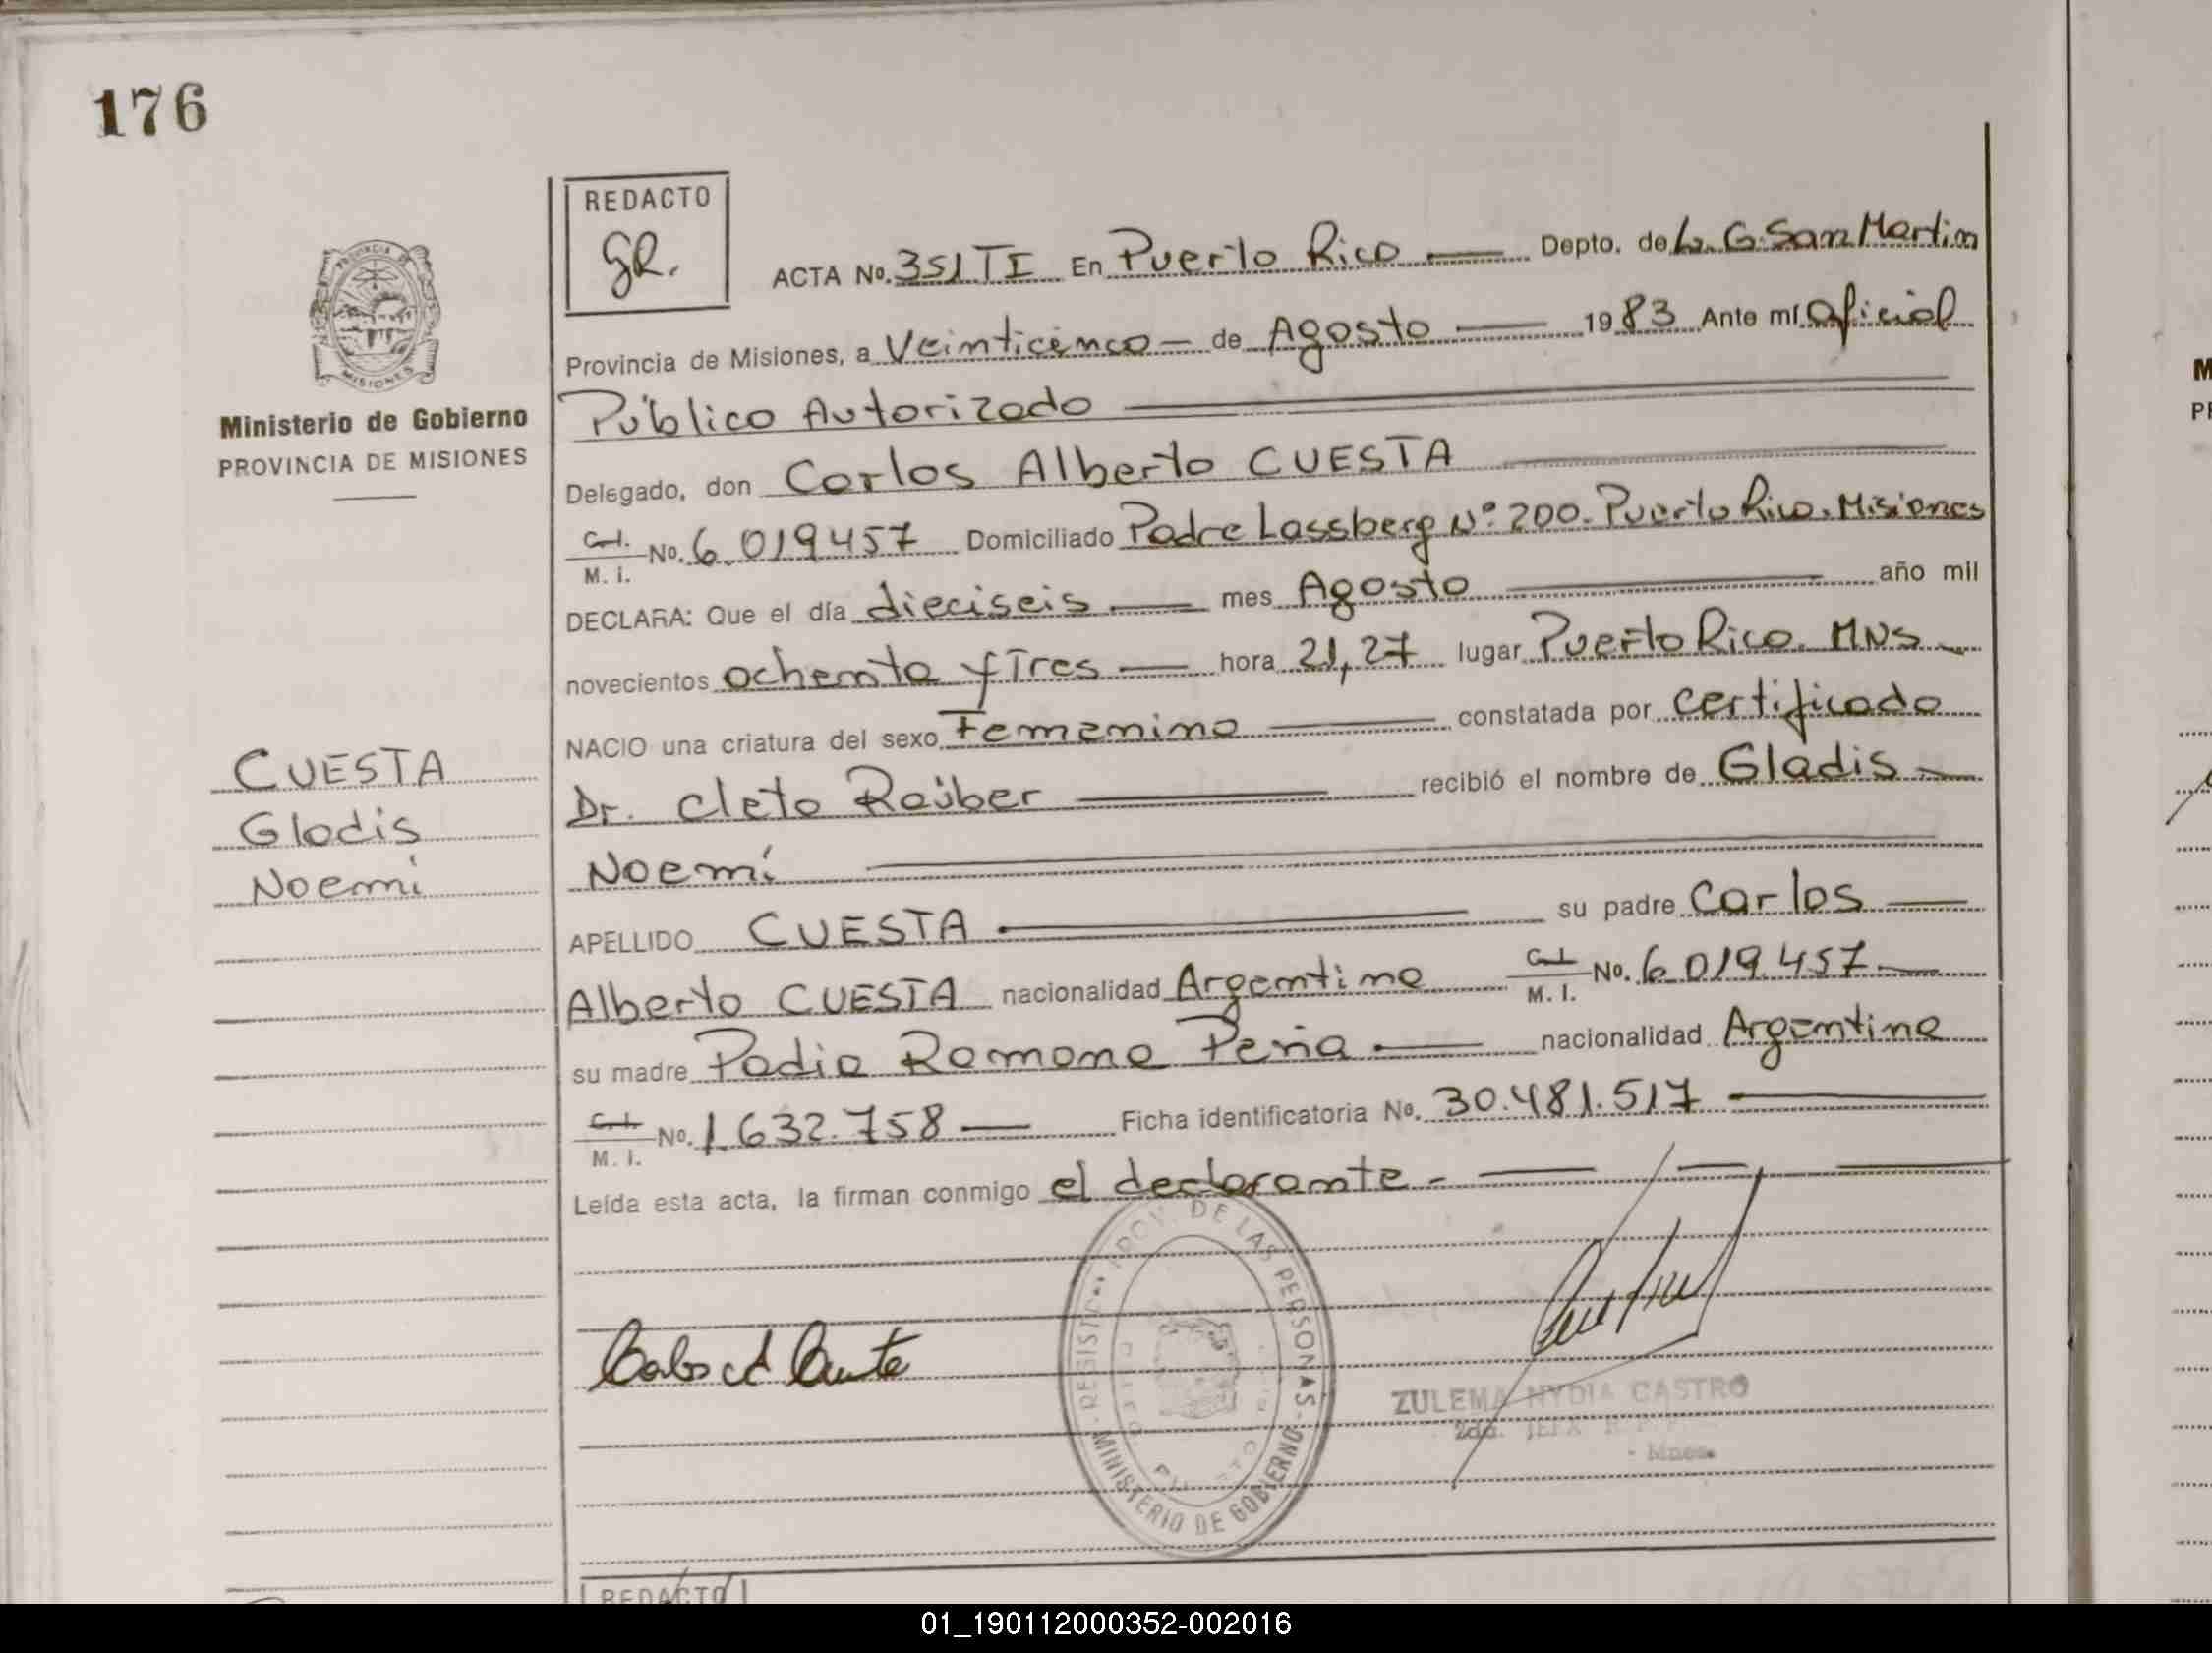 176
REDACTO
GR.
ACTA No. 351 TI En Puerto Rico Depto. de L. G. San Martin
Provincia de Misiones, a Veinticinco de Agosto 1983 Ante mí Oficial
Público Autorizado
Ministerio de Gobierno
PROVINCIA DE MISIONES
Delegado, don Carlos Alberto CUESTA
C.I. M. I. No. 6.019457 Domiciliado Padre Lassberg Nº 200. Puerto Rico. Misiones
DECLARA: Que el día dieciseis mes Agosto año mil
novecientos ochenta y Tres hora 21,27 lugar Puerto Rico. MNS
NACIO una criatura del sexo Femenino constatada por certificado
Dr. Cleto Raüber recibió el nombre de Gladis
Noemí
CUESTA
Gladis
Noemí
APELLIDO CUESTA su padre Carlos
Alberto CUESTA nacionalidad Argentina C.I. M. I. No. 6.019.457
su madre Padia Ramona Peña nacionalidad Argentina
C.I. M. I. No. 1.632.758 Ficha identificatoria No. 30.481.517
Leída esta acta, la firman conmigo el declarante.-
REGISTRO PROV. DE LAS PERSONAS - MINISTERIO DE GOBIERNO
Carlos A Cuesta
ZULEMA NYDIA CASTRO
2da. JEFA
Mnes.
REDACTO
01_190112000352-002016